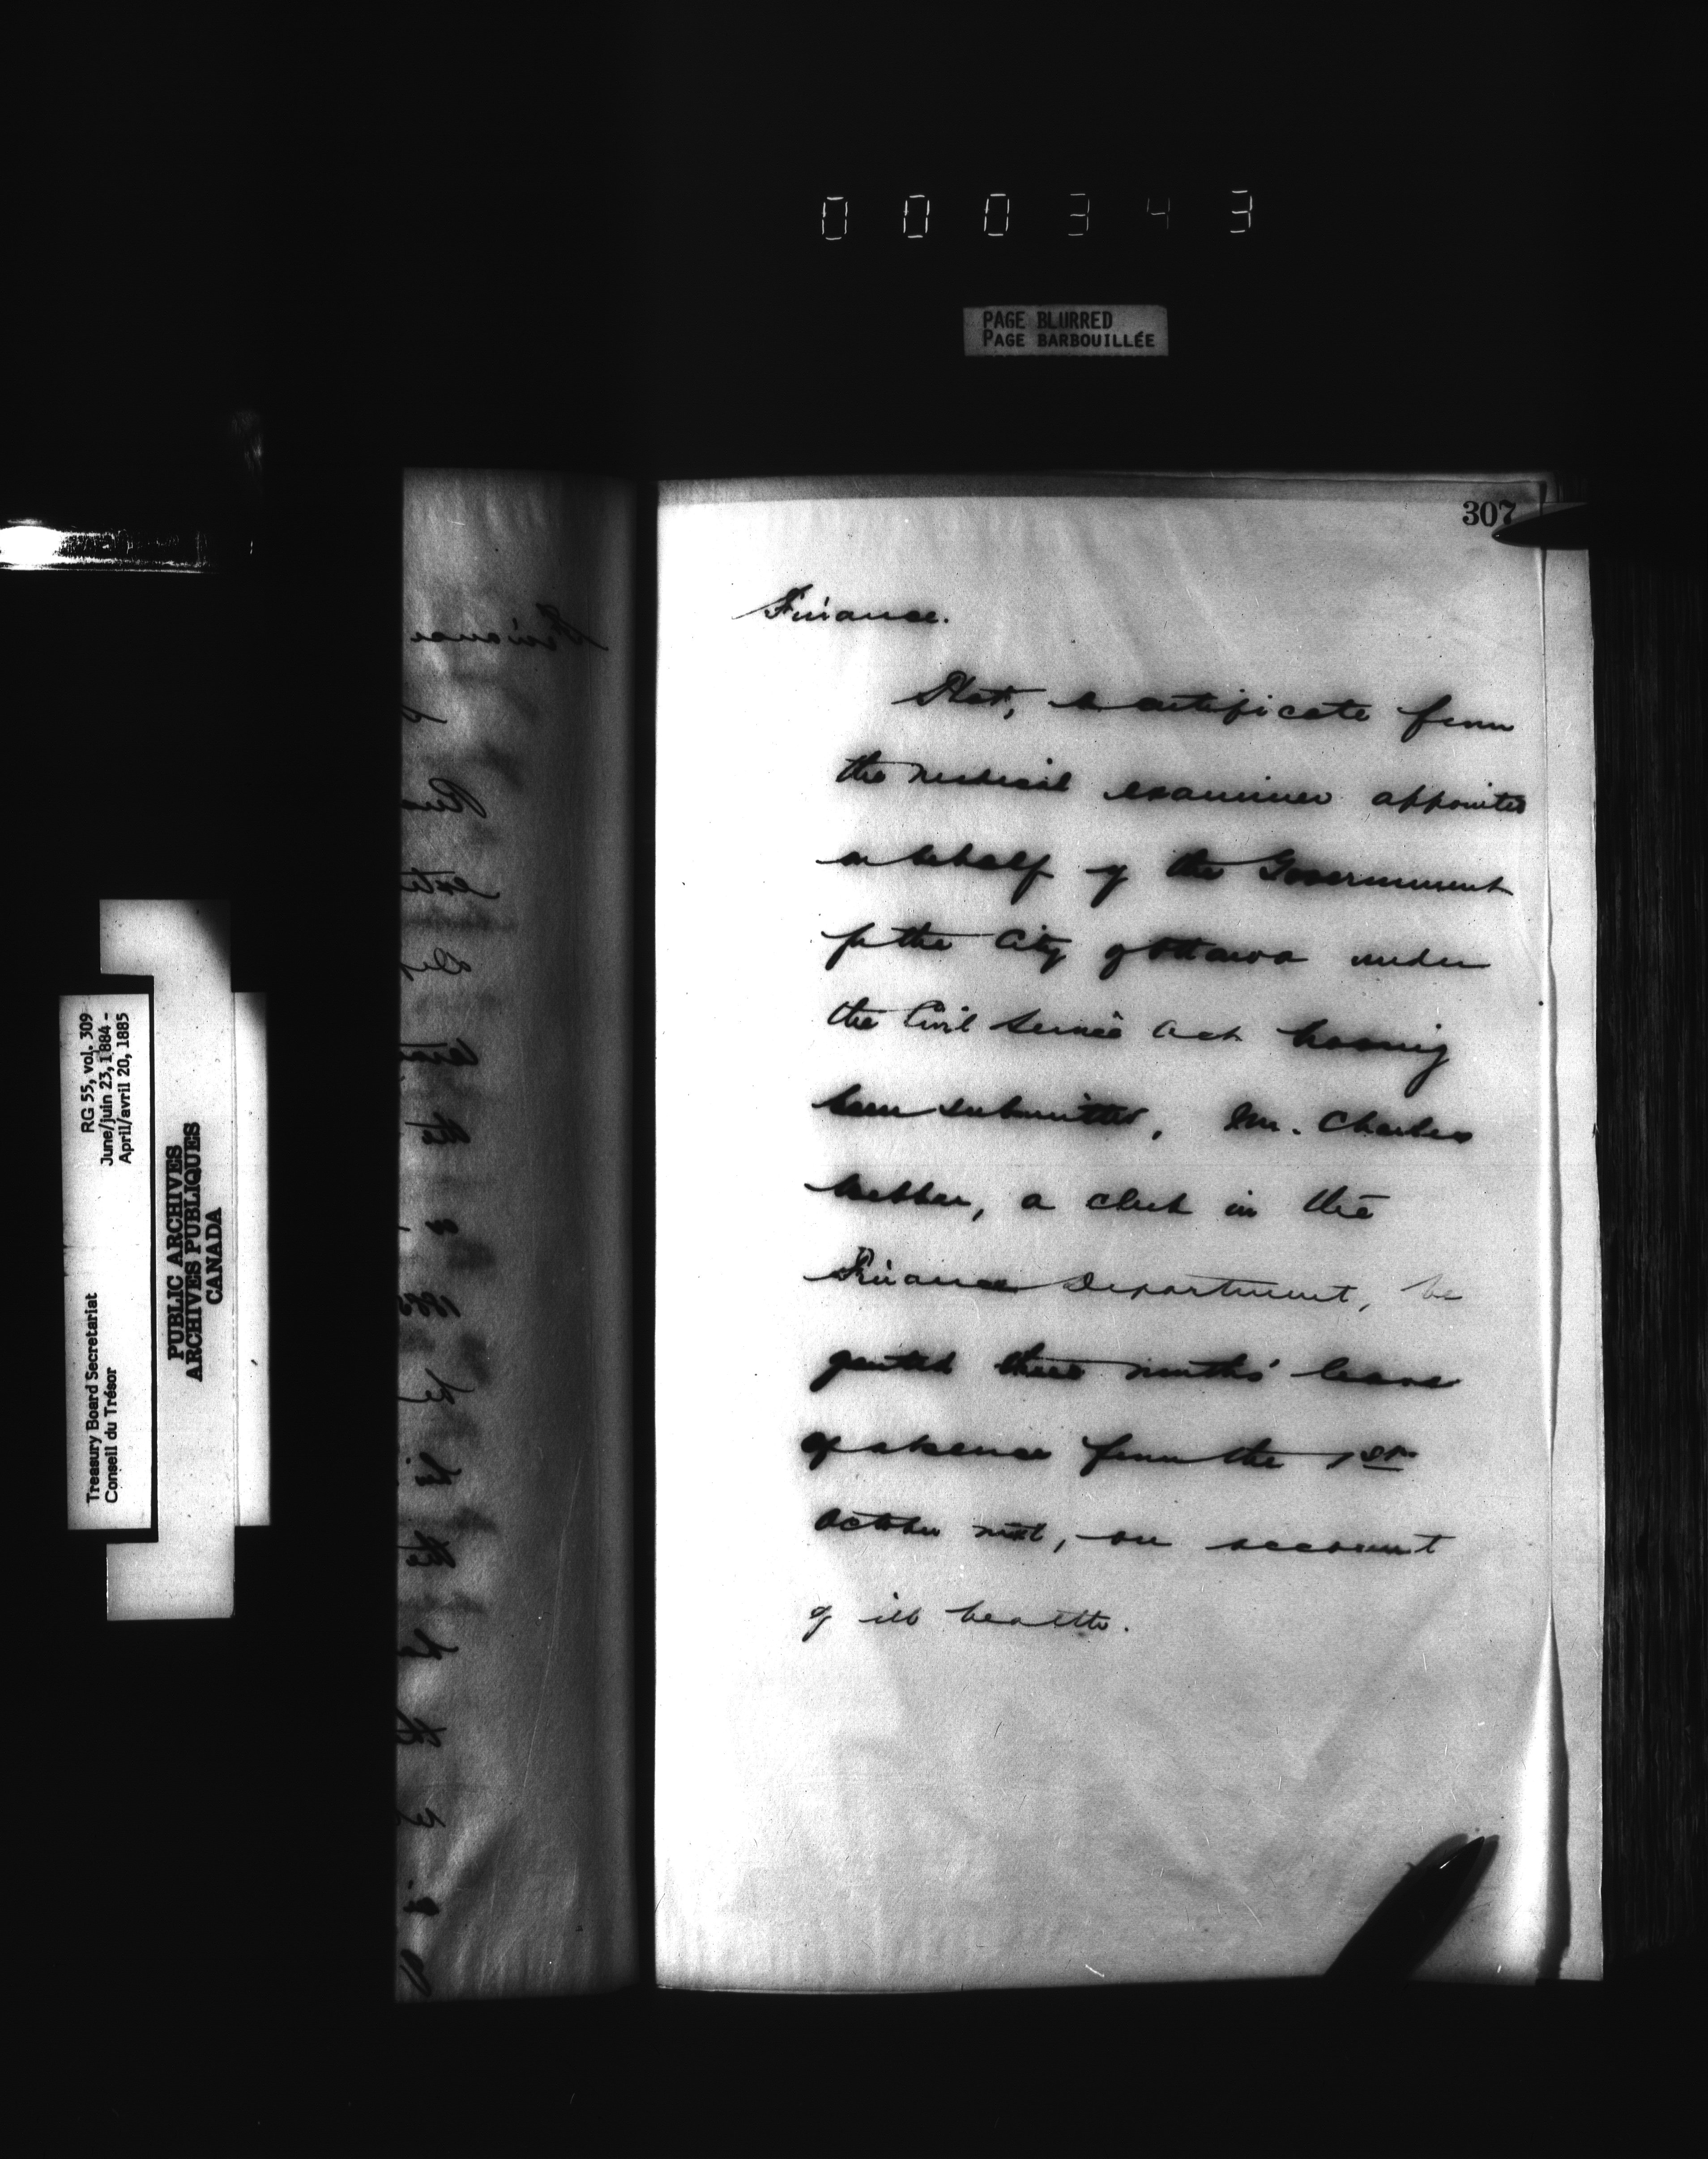 000343
PAGE BLURRED
PAGE BARBOUILLÉE
307
Finance.
That, a certificate from
the medical examiner appointed
on behalf of the Government
for the City of Ottawa under
the Civil Service Act having
been submitted, Mr. Charles
a clerk in the
Finance Department, be
granted three months' leave
of absence from the 1st
October next, on account
of ill health.
RG 55, vol. 309
June/juin 23, 1884 -
April/avril 20, 1885
Treasury Board Secretariat
Conseil du Trésor
PUBLIC ARCHIVES
ARCHIVES PUBLIQUES
CANADA
Finance